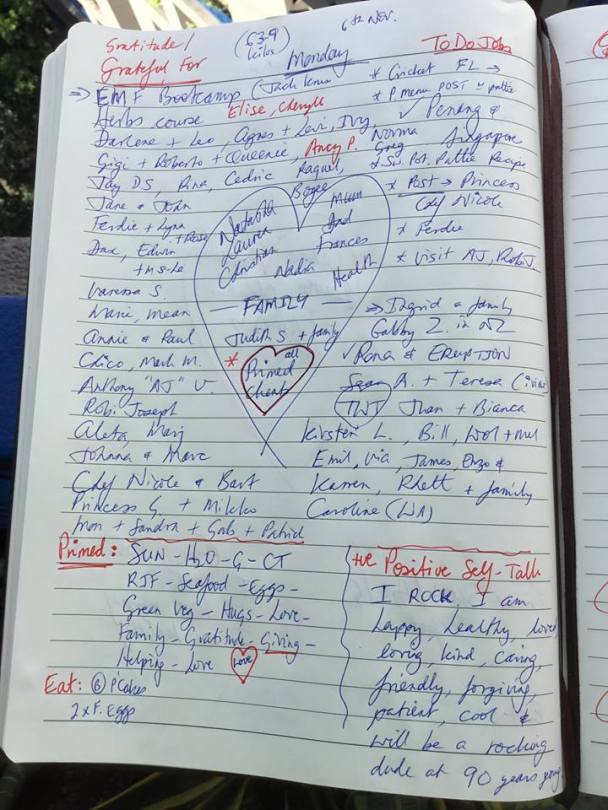 Gratitude/
Grateful For
(63.9
kilos)
6th Nov.
Monday
To Do Jobs
=> EMF Bootcamp (Jack Kruse
Herbs course Elise, Cheryll
Darlene + Leo, Agnes + Levi, Ivy
Gigi + Roberto + Queenie, Ancy P.
Jay D.S, Cedric Raquel,
Jane & John Boyee
Ferdie + Lynn
+ Rose
Dax, Edwin
Vanessa S.
Marie, mean
Annie & Paul
Chico, Mark M.
Anthony "AJ" V.
Robi Joseph
Aleta, Marj
Johnna & Marc
Chef Nicole & Bart
Princess G. + Mikko
Mon + Sandra + Gab + Patrick
* Cricket FL ->
* P menu POST
✓ Penang &
Norma Singapore
Greg
* Post. Pattie Recipe
* Post -> Princess
Chef Nicole
* Ferdie
* Visit AJ, Robi J.
Natasha
Lauren
Christian
Nadia
Mum
Dad
Frances
Health
— FAMILY —
Judith S + family
* all
Primed
Clients
=> Ingrid & family
Gabby Z. in NZ
✓ Rona & ERUPTION
A. + Teresa
TWT Jhan + Bianca
Kirsten L., Bill, Wol + Mel
Emil, Via, James, Enzo &
Karren, Rhett + family
Caroline (WA)
Primed: SUN - H2O - G - CT
RJF - Seafood - Eggs -
Green Veg - Hugs - Love -
Family - Gratitude - Giving -
Helping - Love Love
Eat: ⑥ PCakes
2 x F. Eggs
+ve Positive Self-Talk
I ROCK, I am
happy, healthy, love
loving, kind, caring,
friendly, forgiving,
patient, cool &
will be a rocking
dude at 90 years young